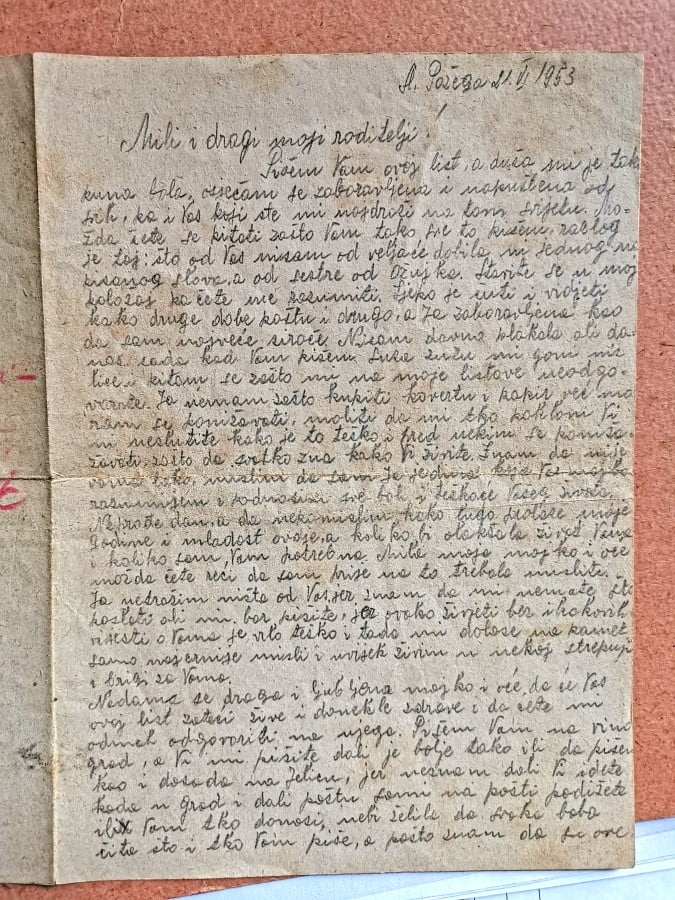 Sl. Požega 21. VI 1953
Mili i dragi moji roditelji!
Pišem Vam ovaj list, a duša mi je tako
puna bola, osjećam se zaboravljena i napuštena od
svih, pa i Vas koji ste mi najdraži na tom svijetu. Mo-
žda ćete se pitati zašto Vam tako sve to pišem, razlog
je taj: što od Vas nisam od veljače dobila, ni jednog na
pisanog slova, a od sestre od Ožujka. Stavite se u moj
položaj pa ćete me razumiti. Ljepo je čuti i vidjeti
kako druge dobe poštu i drugo, a Ja zaboravljena kao
da sam najveće siroče. Nisam davno plakala ali da-
nas sada kad Vam pišem suza suzu mi goni niz
lice i pitam se zašto mi na moje listove neodgo-
varate. Ja nemam zašto kupiti kovertu i papir već mo
ram se ponižavati, moliti da mi tko pokloni Vi
ni neslutite kako je to teško i pred nekim se poniža-
žavati, zašto da svatko zna kako Vi živite. Znam da nije
vama lako, mislim da sam Ja jedina koja Vas majko
razumijem i podnosim sve boli i teškoće Vašeg života.
Neprođe dan, a da nekamislim kako ludo prolaze moje
godine i mladost ovoje, a koliko bi olakšala život Vama
i koliko sam Vam potrebna. Mila moja majko i oče
možda ćete reći da sam prije na to trebala misliti.
Ja netražim ništa od Vas, jer znam da mi nemate što
poslati ali mi bar pišite, jer ovako živjeti bez ikakovih
vijesti o Vama je vrlo teško i tada mi dolaze na pamet
samo najcrnije misli i uvijek živim u nekoj strepnji
i brigi za Vama.
Nadama se draga i ljubljena majko i oče, da će Vas
ovaj list zateći žive i donekle zdrave i da ćete mi
odmah odgovoriti na njega. Pišem Vam na vino
grad, a Vi mi pišite dali je bolje tako ili da pišem
kao i dosada na Jelicu, jer neznam dali Vi idete
kada u grad i dali poštu sami na pošti podižete
ili Vam tko donosi, nebi želila da svaka baba
čita što i tko Vam piše, a pošto znam da su ove